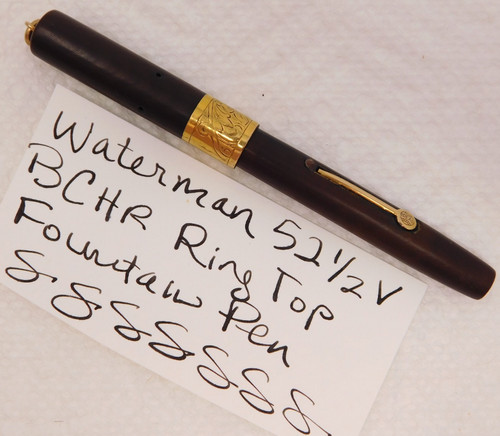 Waterman 52½V
BCHR Ring Top
Fountain Pen